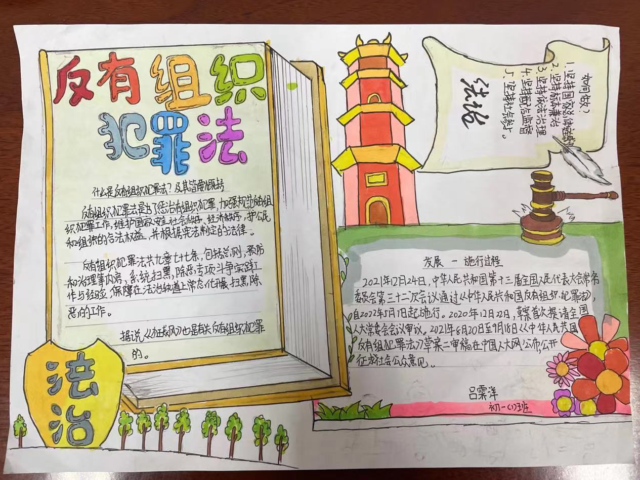 反有组织
犯罪法
什么是反有组织犯罪法？及其
反有组织犯罪法是为了预防和惩治有组织犯罪，加强和规范反有组
织犯罪工作，维护国家安全、社会秩序、经济秩序，保护公民
和组织的合法权益，并根据宪法制定的法律。
反有组织犯罪法共九章七十七条，包括总则、预防
和治理等内容，系统 扫黑除恶专项斗争实践工
作与经验，保障在法治轨道上常态化开展扫黑除
恶的工作。
据说《 》也是有关反有组织犯罪
的。
法治
法治
如何做？
1. 坚持国家总体
2. 坚持
3. 坚持依法治理
4. 坚持配合监督
5. 坚持
发展 一 施行过程
2021年12月24日，中华人民共和国第十三届全国人民代表大会常务
委员会第三十二次会议通过《中华人民共和国反有组织犯罪法》，
自2022年5月1日起施行。2020年12月22日，草案首次提请全国
人大常委会会议审议。2021年 《中华人民共和国
反有组织犯罪法》草案二审稿在中国人大网公布，公开
征求社会公众意见。
吕霂泽
初一(7)班